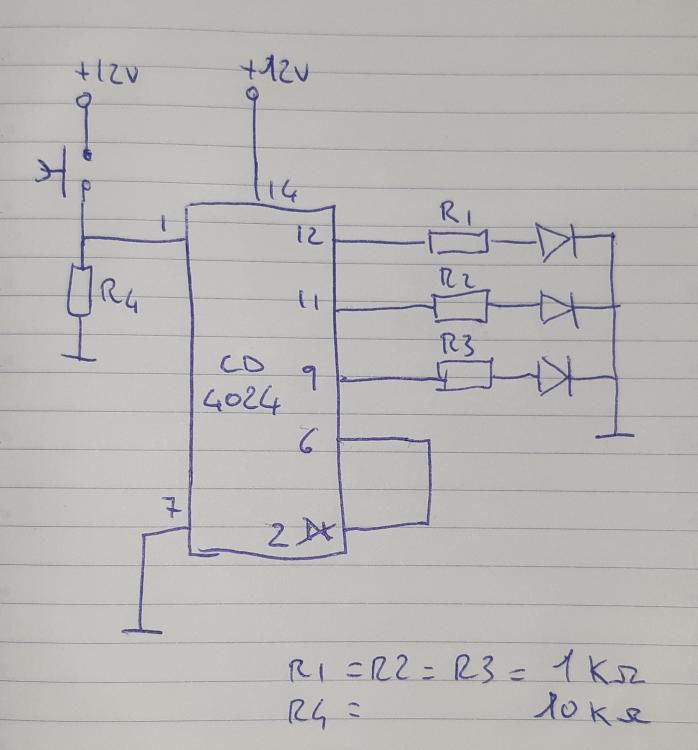 +12V
+12V
14
1
12
R1
R4
11
R2
CD
4024
9
R3
6
7
2
R1 = R2 = R3 = 1KΩ
R4 = 10KΩ